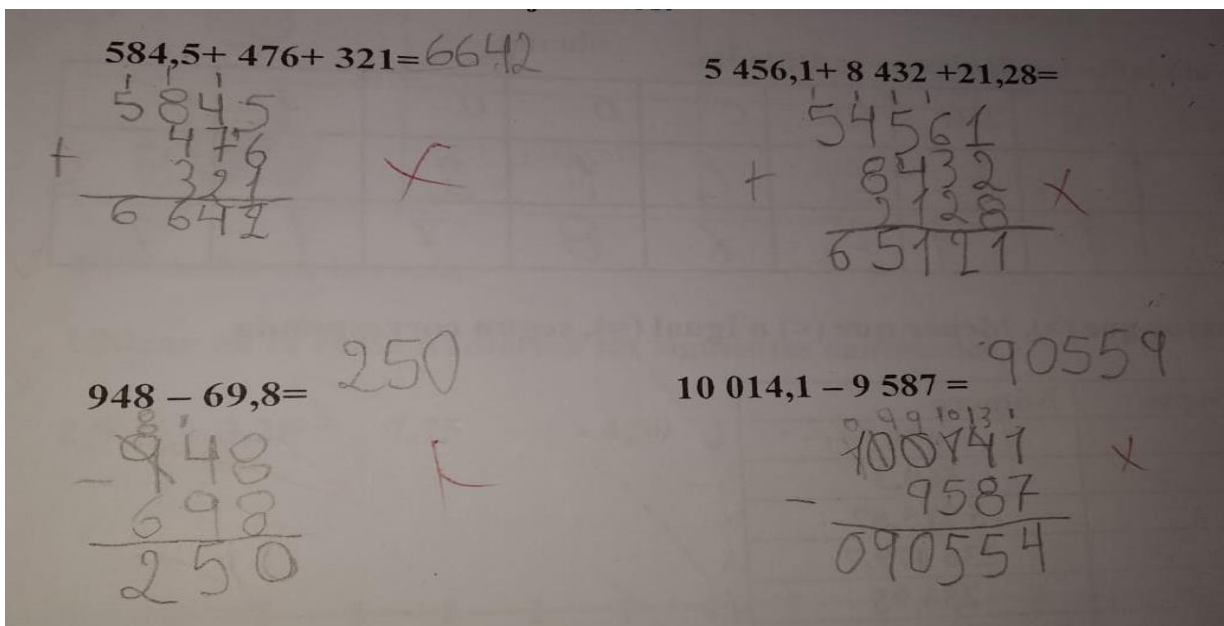 584,5+ 476+ 321= 6642
1 1 1
5845
476
+ 321
6642
5 456,1+ 8 432 +21,28=
1 1 1 1
54561
8432
+ 2128
65121
948 – 69,8= 250
8 1
948
- 698
250
10 014,1 – 9 587 = 90559
0 9 9 10 13 1
100141
- 9587
090554